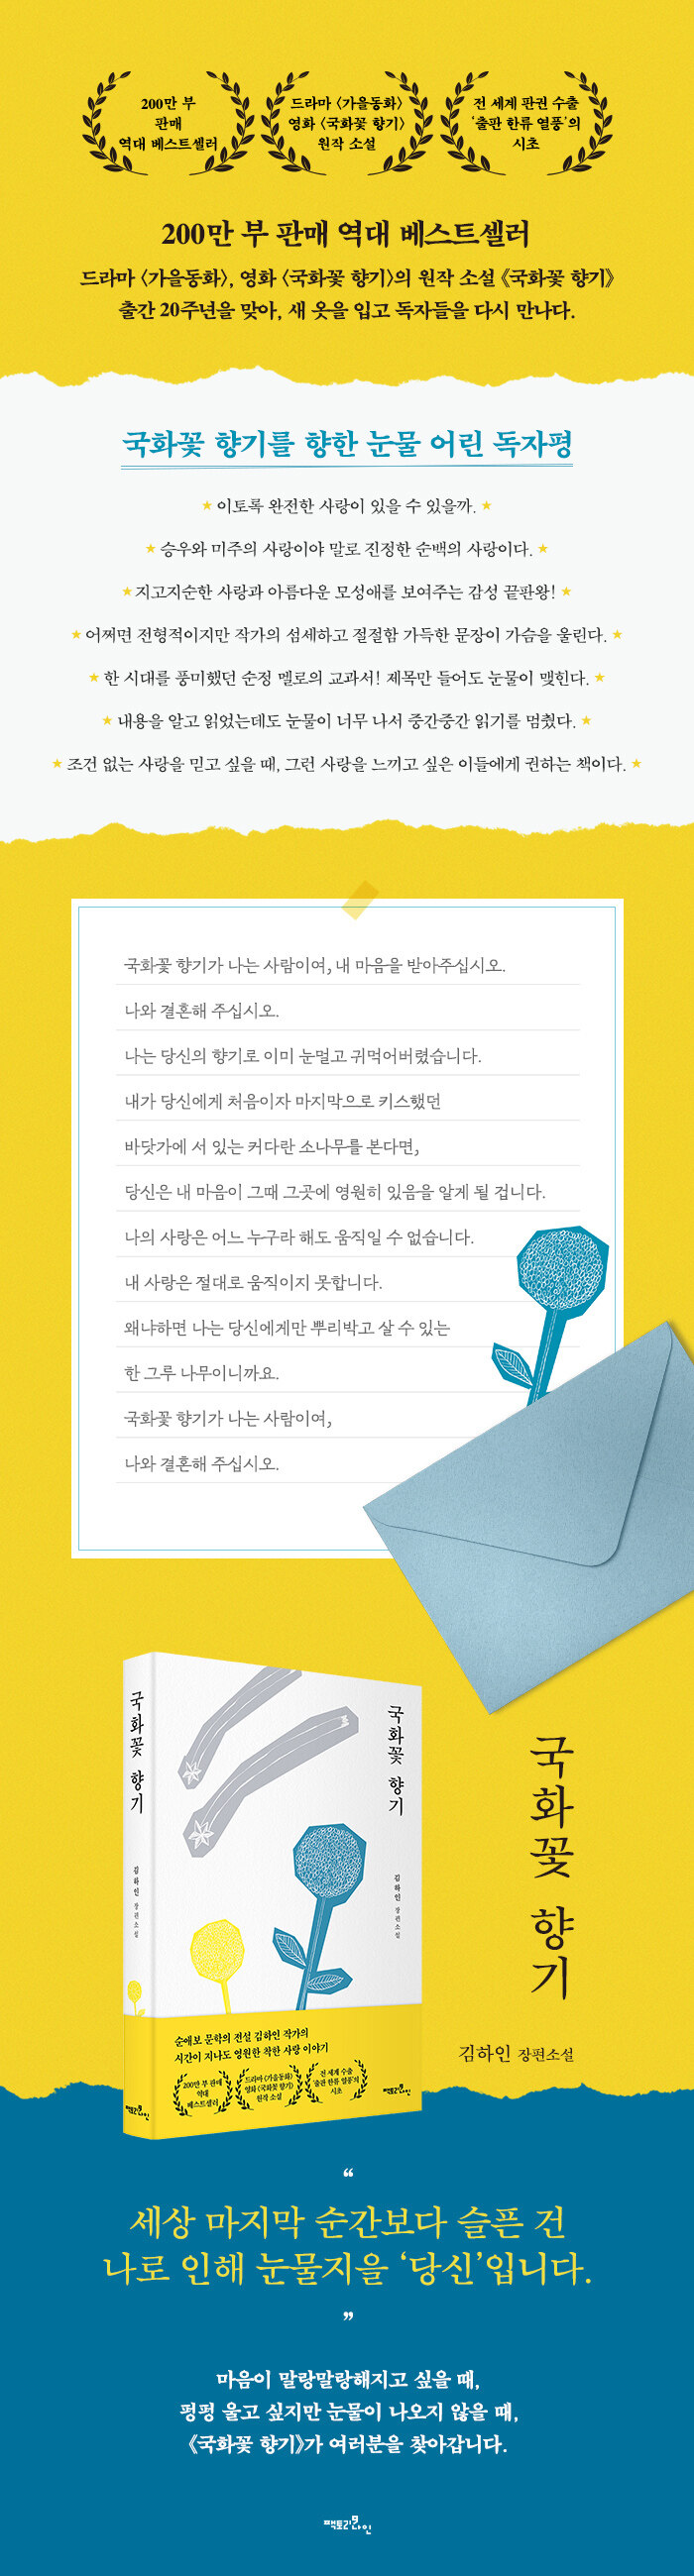 200만 부
판매
역대 베스트셀러
드라마 〈가을동화〉
영화 〈국화꽃 향기〉
원작 소설
전 세계 판권 수출
‘출판 한류 열풍’의
시초
200만 부 판매 역대 베스트셀러
드라마 〈가을동화〉, 영화 〈국화꽃 향기〉의 원작 소설 《국화꽃 향기》
출간 20주년을 맞아, 새 옷을 입고 독자들을 다시 만나다.
국화꽃 향기를 향한 눈물 어린 독자평
★ 이토록 완전한 사랑이 있을 수 있을까. ★
★ 승우와 미주의 사랑이야 말로 진정한 순백의 사랑이다. ★
★ 지고지순한 사랑과 아름다운 모성애를 보여주는 감성 끝판왕! ★
★ 어쩌면 전형적이지만 작가의 섬세하고 절절함 가득한 문장이 가슴을 울린다. ★
★ 한 시대를 풍미했던 순정 멜로의 교과서! 제목만 들어도 눈물이 맺힌다. ★
★ 내용을 알고 읽었는데도 눈물이 너무 나서 중간중간 읽기를 멈췄다. ★
★ 조건 없는 사랑을 믿고 싶을 때, 그런 사랑을 느끼고 싶은 이들에게 권하는 책이다. ★
국화꽃 향기가 나는 사람이여, 내 마음을 받아주십시오.
나와 결혼해 주십시오.
나는 당신의 향기로 이미 눈멀고 귀먹어버렸습니다.
내가 당신에게 처음이자 마지막으로 키스했던
바닷가에 서 있는 커다란 소나무를 본다면,
당신은 내 마음이 그때 그곳에 영원히 있음을 알게 될 겁니다.
나의 사랑은 어느 누구라 해도 움직일 수 없습니다.
내 사랑은 절대로 움직이지 못합니다.
왜냐하면 나는 당신에게만 뿌리박고 살 수 있는
한 그루 나무이니까요.
국화꽃 향기가 나는 사람이여,
나와 결혼해 주십시오.
국화꽃 향기
김하인 장편소설
팩토리나인
국화꽃 향기
김하인 장편소설
순애보 문학의 전설 김하인 작가의
시간이 지나도 영원한 착한 사랑 이야기
200만 부 판매
역대
베스트셀러
드라마 〈가을동화〉
영화 〈국화꽃 향기〉
원작 소설
전 세계 수출
‘출판 한류 열풍’의
시초
팩토리나인
국화꽃 향기
김하인 장편소설
“
세상 마지막 순간보다 슬픈 건
나로 인해 눈물지을 ‘당신’입니다.
”
마음이 말랑말랑해지고 싶을 때,
펑펑 울고 싶지만 눈물이 나오지 않을 때,
《국화꽃 향기》가 여러분을 찾아갑니다.
팩토리나인